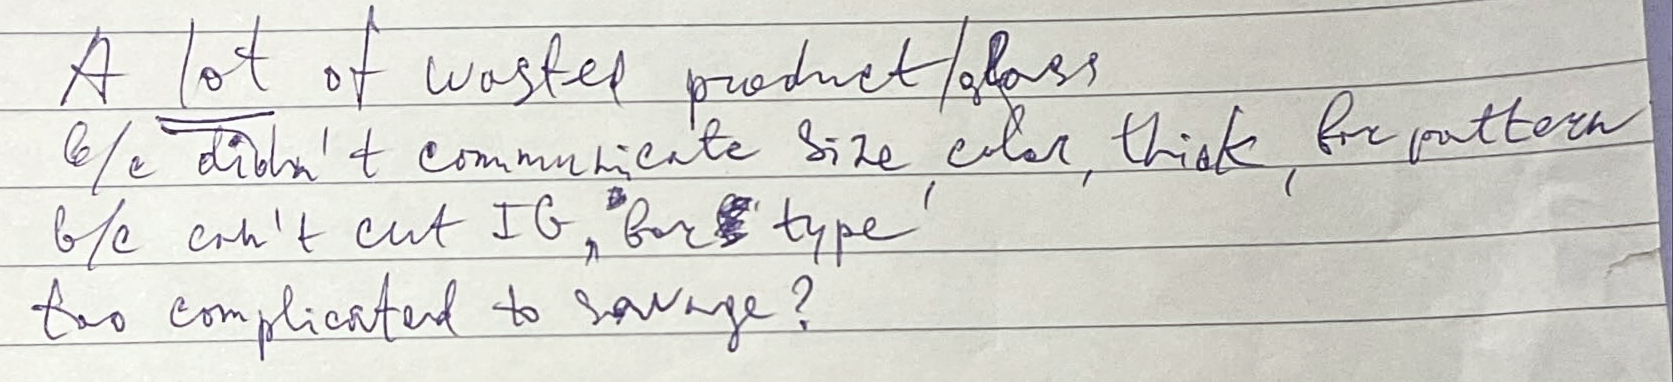 A lot of wasted product/glass
b/c didn't communicate size, color, thick, bar pattern
b/c can't cut IG, "bar type"
too complicated to savage?